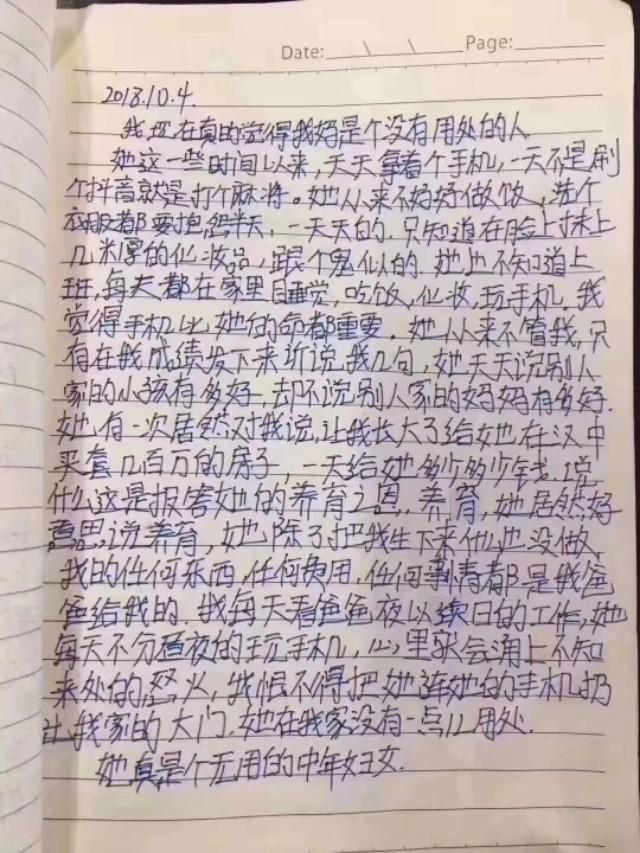 Date: \ \ Page:
2018.10.4.
我现在真的觉得我妈是个没有用处的人
她这一些时间以来,天天拿着个手机,一天不是刷
个抖音就是打个麻将。她从来不好好做饭,洗个
衣服都要抱怨半天,一天天的.只知道在脸上抹上
几米厚的化妆品,跟个鬼似的.她也不知道上
班,每天都在家里睡觉,吃饭,化妆,玩手机.我
觉得手机比她的命都重要。她从来不管我,只
有在我成绩发下来诉说我几句,她天天说别人
家的小孩有多好,却不说别人家的妈妈有多好.
她有一次居然对我说,让我长大了给她在汉中
买套几百万的房子,一天给她多少多少钱.说
什么这是报答她的养育之恩.养育,她居然好
意思说养育,她除了把我生下来什么也没做
我的任何东西,任何费用,任何事情都是我爸
爸给我的.我每天看爸爸夜以续日的工作,她
每天不分昼夜的玩手机,心里就会涌上不知
来处的怒火,我恨不得把她连她的手机扔
出我家的大门.她在我家没有一点儿用处.
她真是个无用的中年妇女.